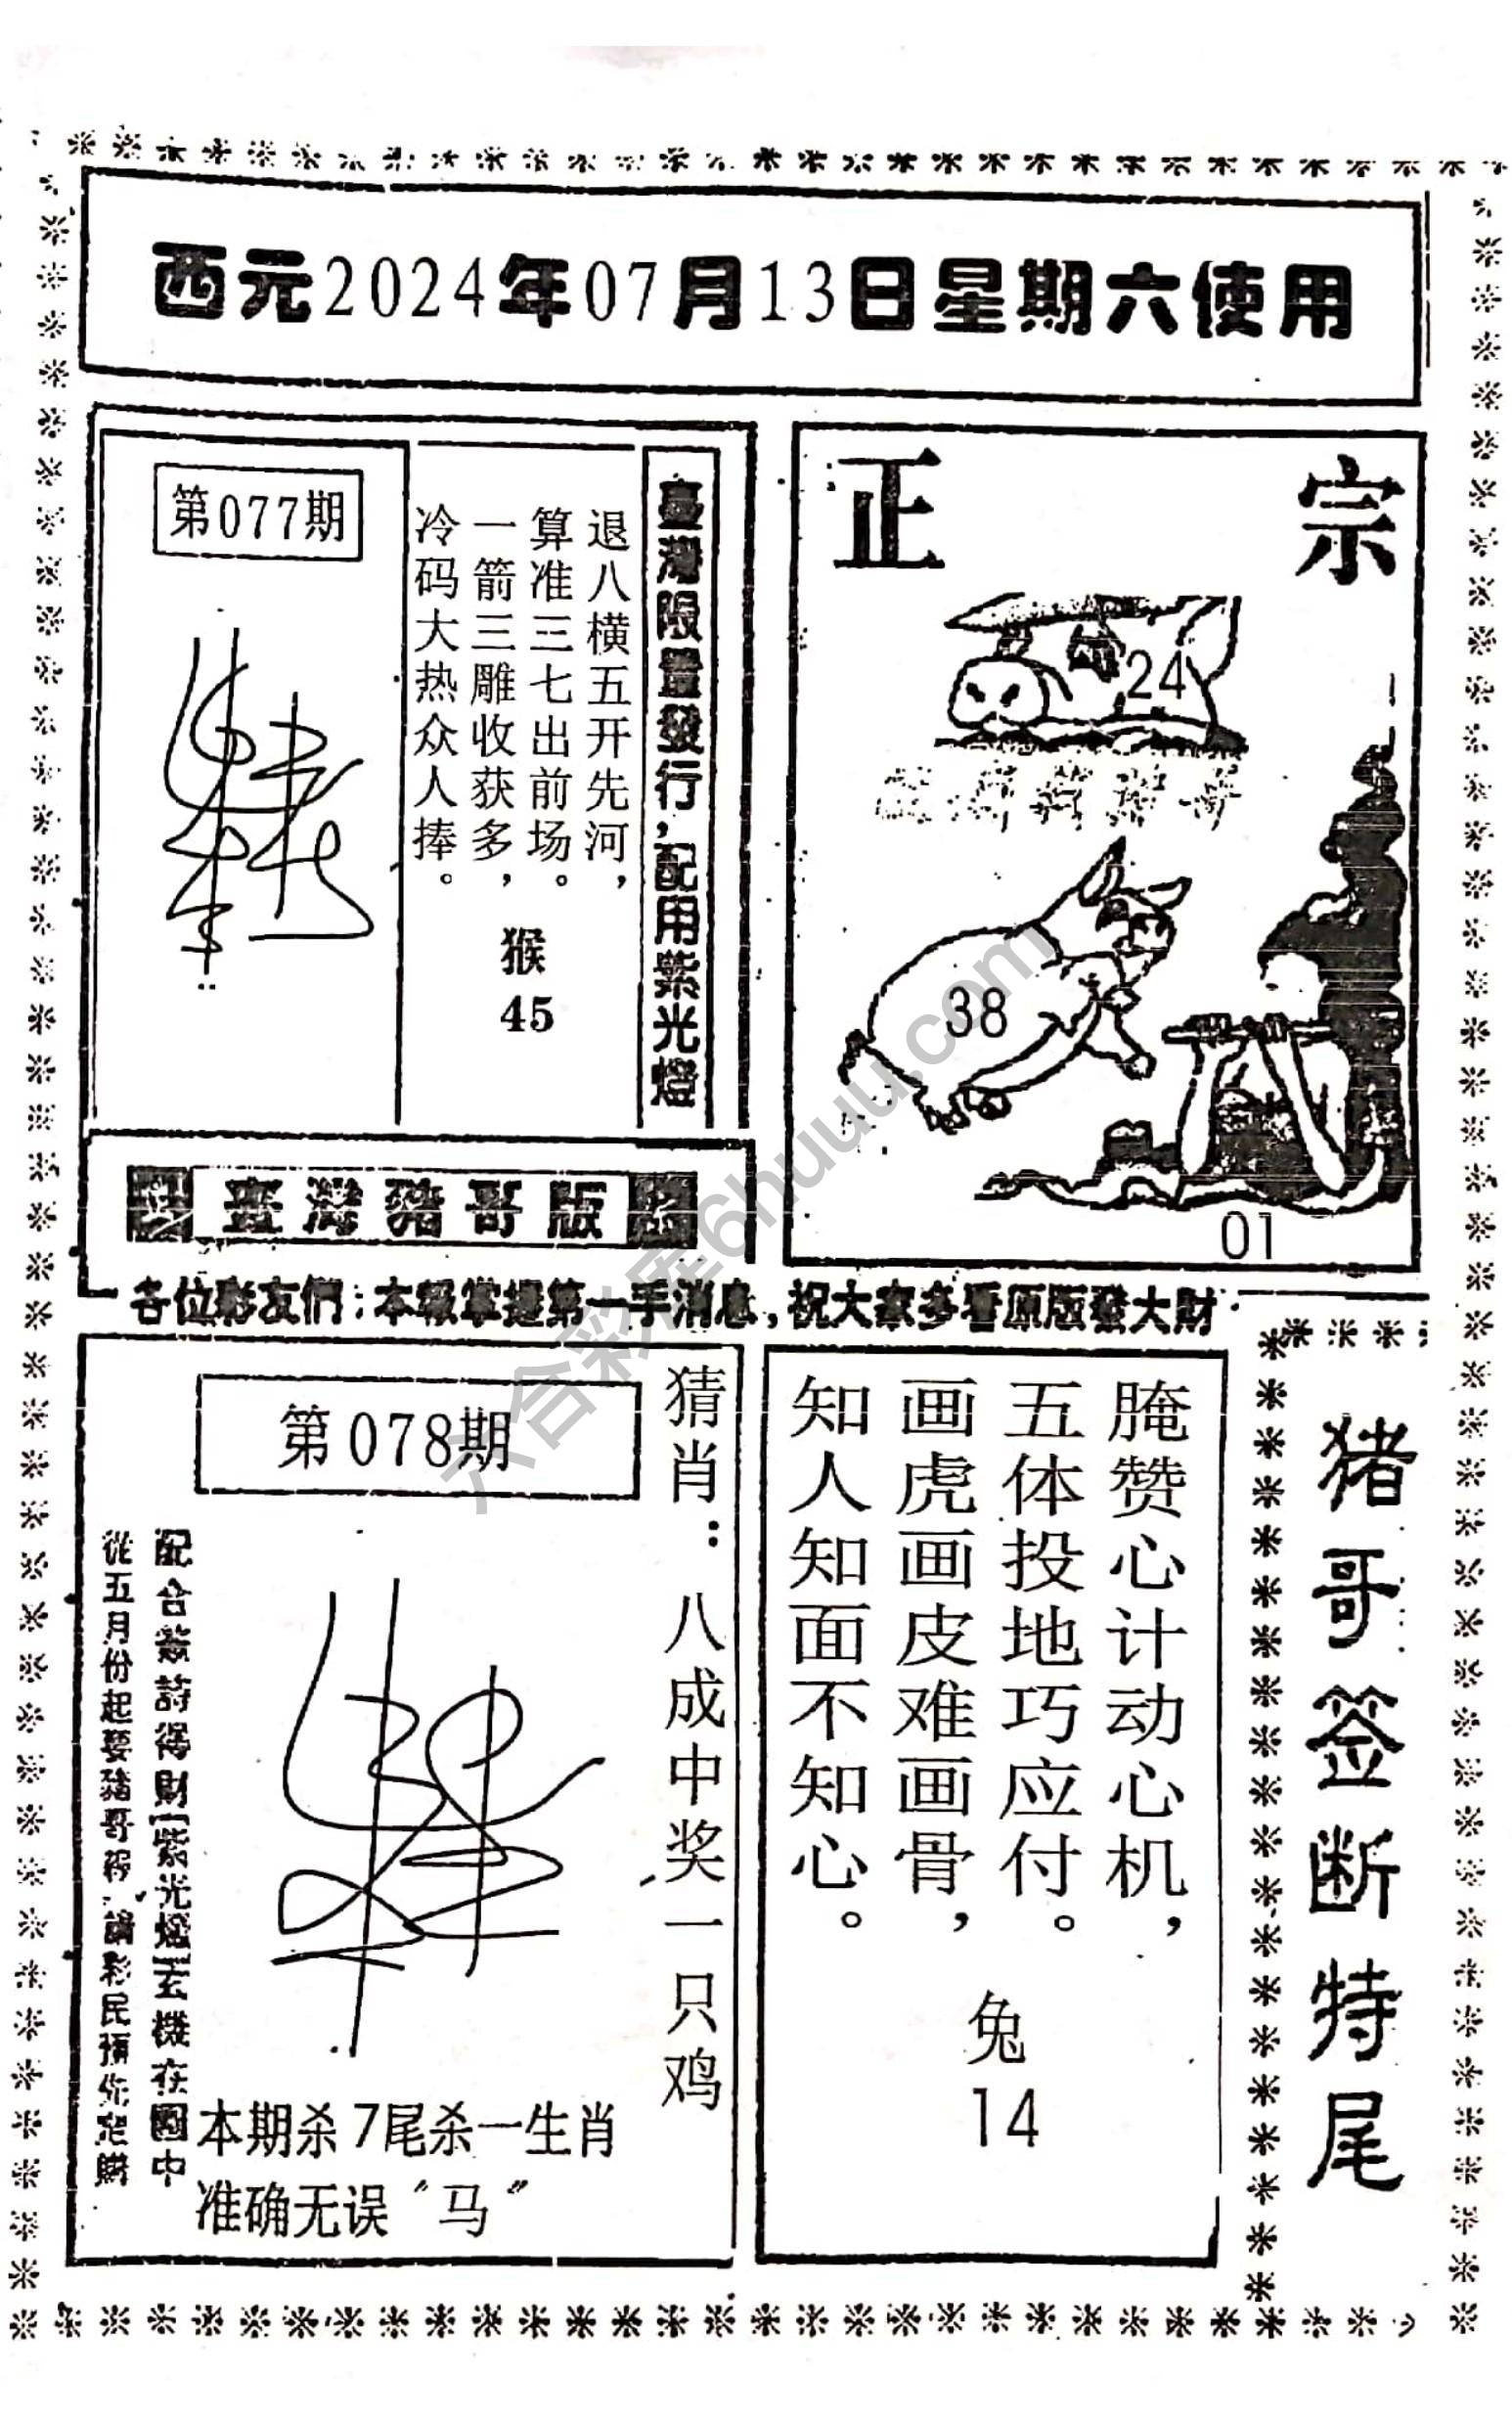 西元2024年07月13日星期六使用
第077期
臺灣限量發行,配用紫光燈
退八横五开先河,
算准三七出前场。
一箭三雕收获多,
冷码大热众人捧。
猴
45
正宗
24
38
01
臺灣豬哥版
各位彩友們:本報掌握第一手消息,祝大家多看原版發大財
第078期
猜肖:八成中奖一只鸡
配合簽詩得財[紫光燈]玄機在圖中
從五月份起要豬哥報 請彩民預先定購
本期杀7尾杀一生肖
准确无误“马”
猪哥签断特尾
腌赞心计动心机,
五体投地巧应付。
画虎画皮难画骨,
知人知面不知心。
兔
14
六合彩库6huuu.com